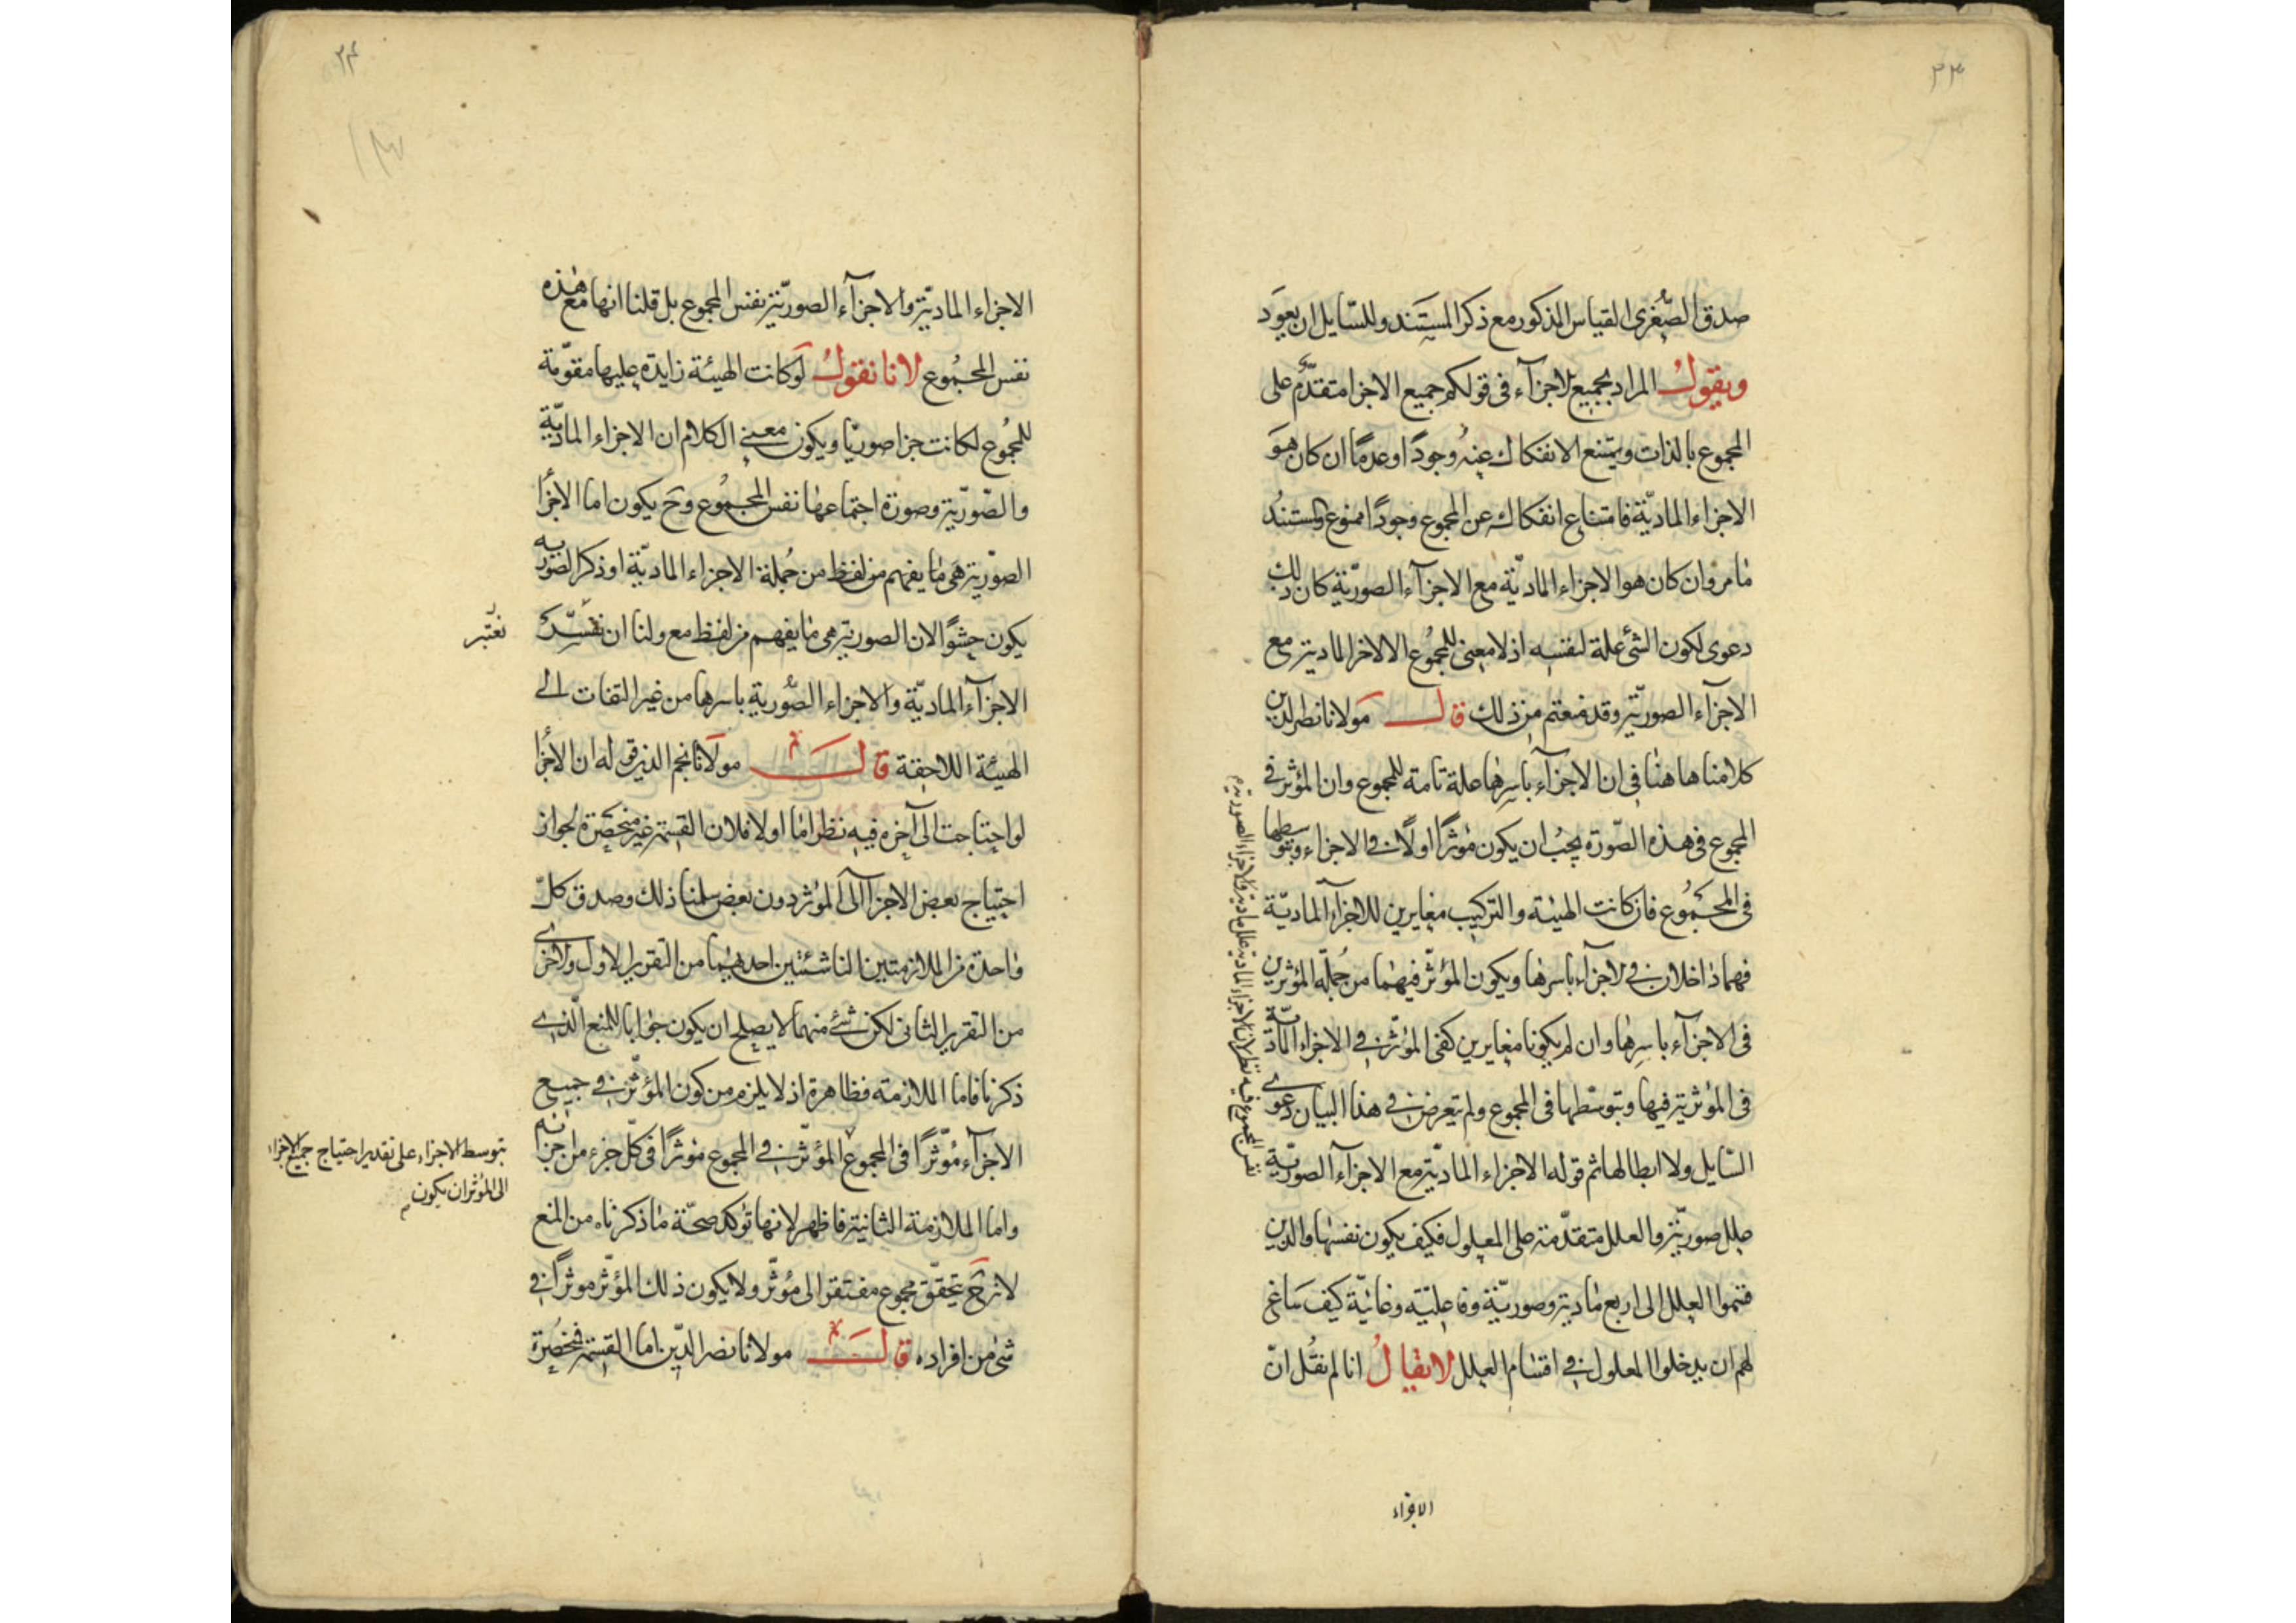 ٢٣
صدق الصغرى القياس المذكور مع ذكر المستند وللسّايل ان يعود
ويقول المراد بجميع الاجزآء فى قولكم جميع الاجزا متقدّم على
المجموع بالذات ويمتنع الانفكاك عنه وجودًا وعدمًا ان كان هو
الاجزاء الماديّة فامتناع انفكاكه عن المجموع وجودًا ممنوع والمستند
مامر وان كان هو الاجزاء الماديّة مع الاجزآء الصوريّة كان ذلك
دعوى لكون الشئ علة لنفسه اذ لا معنى للمجموع الا الاجزا الماديّة مع
الاجزآء الصوريّة وقد منعتم من ذلك قال مولانا
كلامنا هاهنا فى ان الاجزآء باسرها علة تامة للمجموع وان المؤثر فى
المجموع فى هذه الصّورة يجب ان يكون مؤثرًا اولًا فى الاجزاء وبتوسطها
فى المجموع فان كانت الهيئة والتركيب مغايرين للاجزآء الماديّة
فهما داخلان فى الاجزآء باسرها ويكون المؤثّر فيهما من جُملة المؤثرين
فى الاجزآء باسرها وان لم يكونا مغايرين كفى المؤثّر فى الاجزاء الماديّة
فى المؤثرية فيها وبتوسّطها فى المجموع ولم تعرض فى هذا البيان دعوى
السّايل ولا ابطالها ثم قوله الاجزاء الماديّة مع الاجزآء الصوريّة
نفس المجموع فيه نظر لان الاجزاء المادية علل مادية والاجزاء الصورية
علل صوريّة والعلل متقدّمة على المعلول فكيف يكون نفسها والذين
قسموا العلل الى اربع ماديّة وصوريّة وفاعليّة وغائيّة كيف ساغ
لهم ان يدخلوا المعلول فى اقسام العلل لا يقال انا لم نقل انّ
الاجزاء
٢٤
الاجزاء الماديّة والاجزآء الصوريّة نفس المجموع بل قلنا انها مع هذه
نفس المجموع لانا نقول لو كانت الهيئة زايدة عليها مقوّمة
للمجموع لكانت جزا صوريّا ويكون معنى الكلام ان الاجزاء الماديّة
والصّوريّة وصورة اجتماعها نفس المجموع وح يكون اما الاجزا
الصوريّة هى ما يفهم من لفظ من جُملة الاجزاء الماديّة او ذكر الصوريه
يكون حشوًا لان الصورية هى ما يفهم من لفظ مع ولنا ان
نعتبر
الاجزآء الماديّة والاجزاء الصُورية باسرها من غير التفات الى
الهيئة اللاحقة قال مولانا نجم الدين قوله ان الاجزا
لو احتاجت الى آخره فيه نظر اما اولا فلان القسمة غير منحصرة لجواز
احتياج بعض الاجزآ الى المؤثر دون بعض سلمنا ذلك وصدق كلّ
واحدة من الملازمتين الناشئتين احديهما من التقرير الاول والاخرى
من التقرير الثانى لكن شئ منهما لا يصلح ان يكون جوابا للمنع الّذى
ذكرنا فاما الملازمة فظاهرة اذ لا يلزم من كون المؤثّر فى جميع
الاجزآء مُؤثّرًا فى المجموع المؤثّر فى المجموع مؤثرًا فى كلّ جزء من اجزائه
بتوسط الاجزاء على تقدير احتياج جميع الاجزاء
الى المؤثر ان يكون
واما الملازمة الثانية فاظهر لانها تؤكد صحّة ما ذكرناه من المنع
لانه ح يتحقّق مجموع مفتقر الى مؤثّر ولا يكون ذلك المؤثّر موثرًا فى
شئ من افراده قال مولانا نصر الدّين اما القسمة فمنحصرة